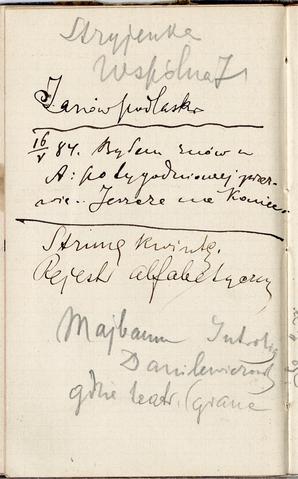 Stryjenka
Wspólna 7
Janów podlaski
16/V 84. Byłem znów u
A: po tygodniowej przer-
wie.. Jeszcze nie koniec
Strunę kwintę.
Rejestr alfabetyczny
Majbaum Introlig
Danilewiczowska
gdzie teatr. (grane